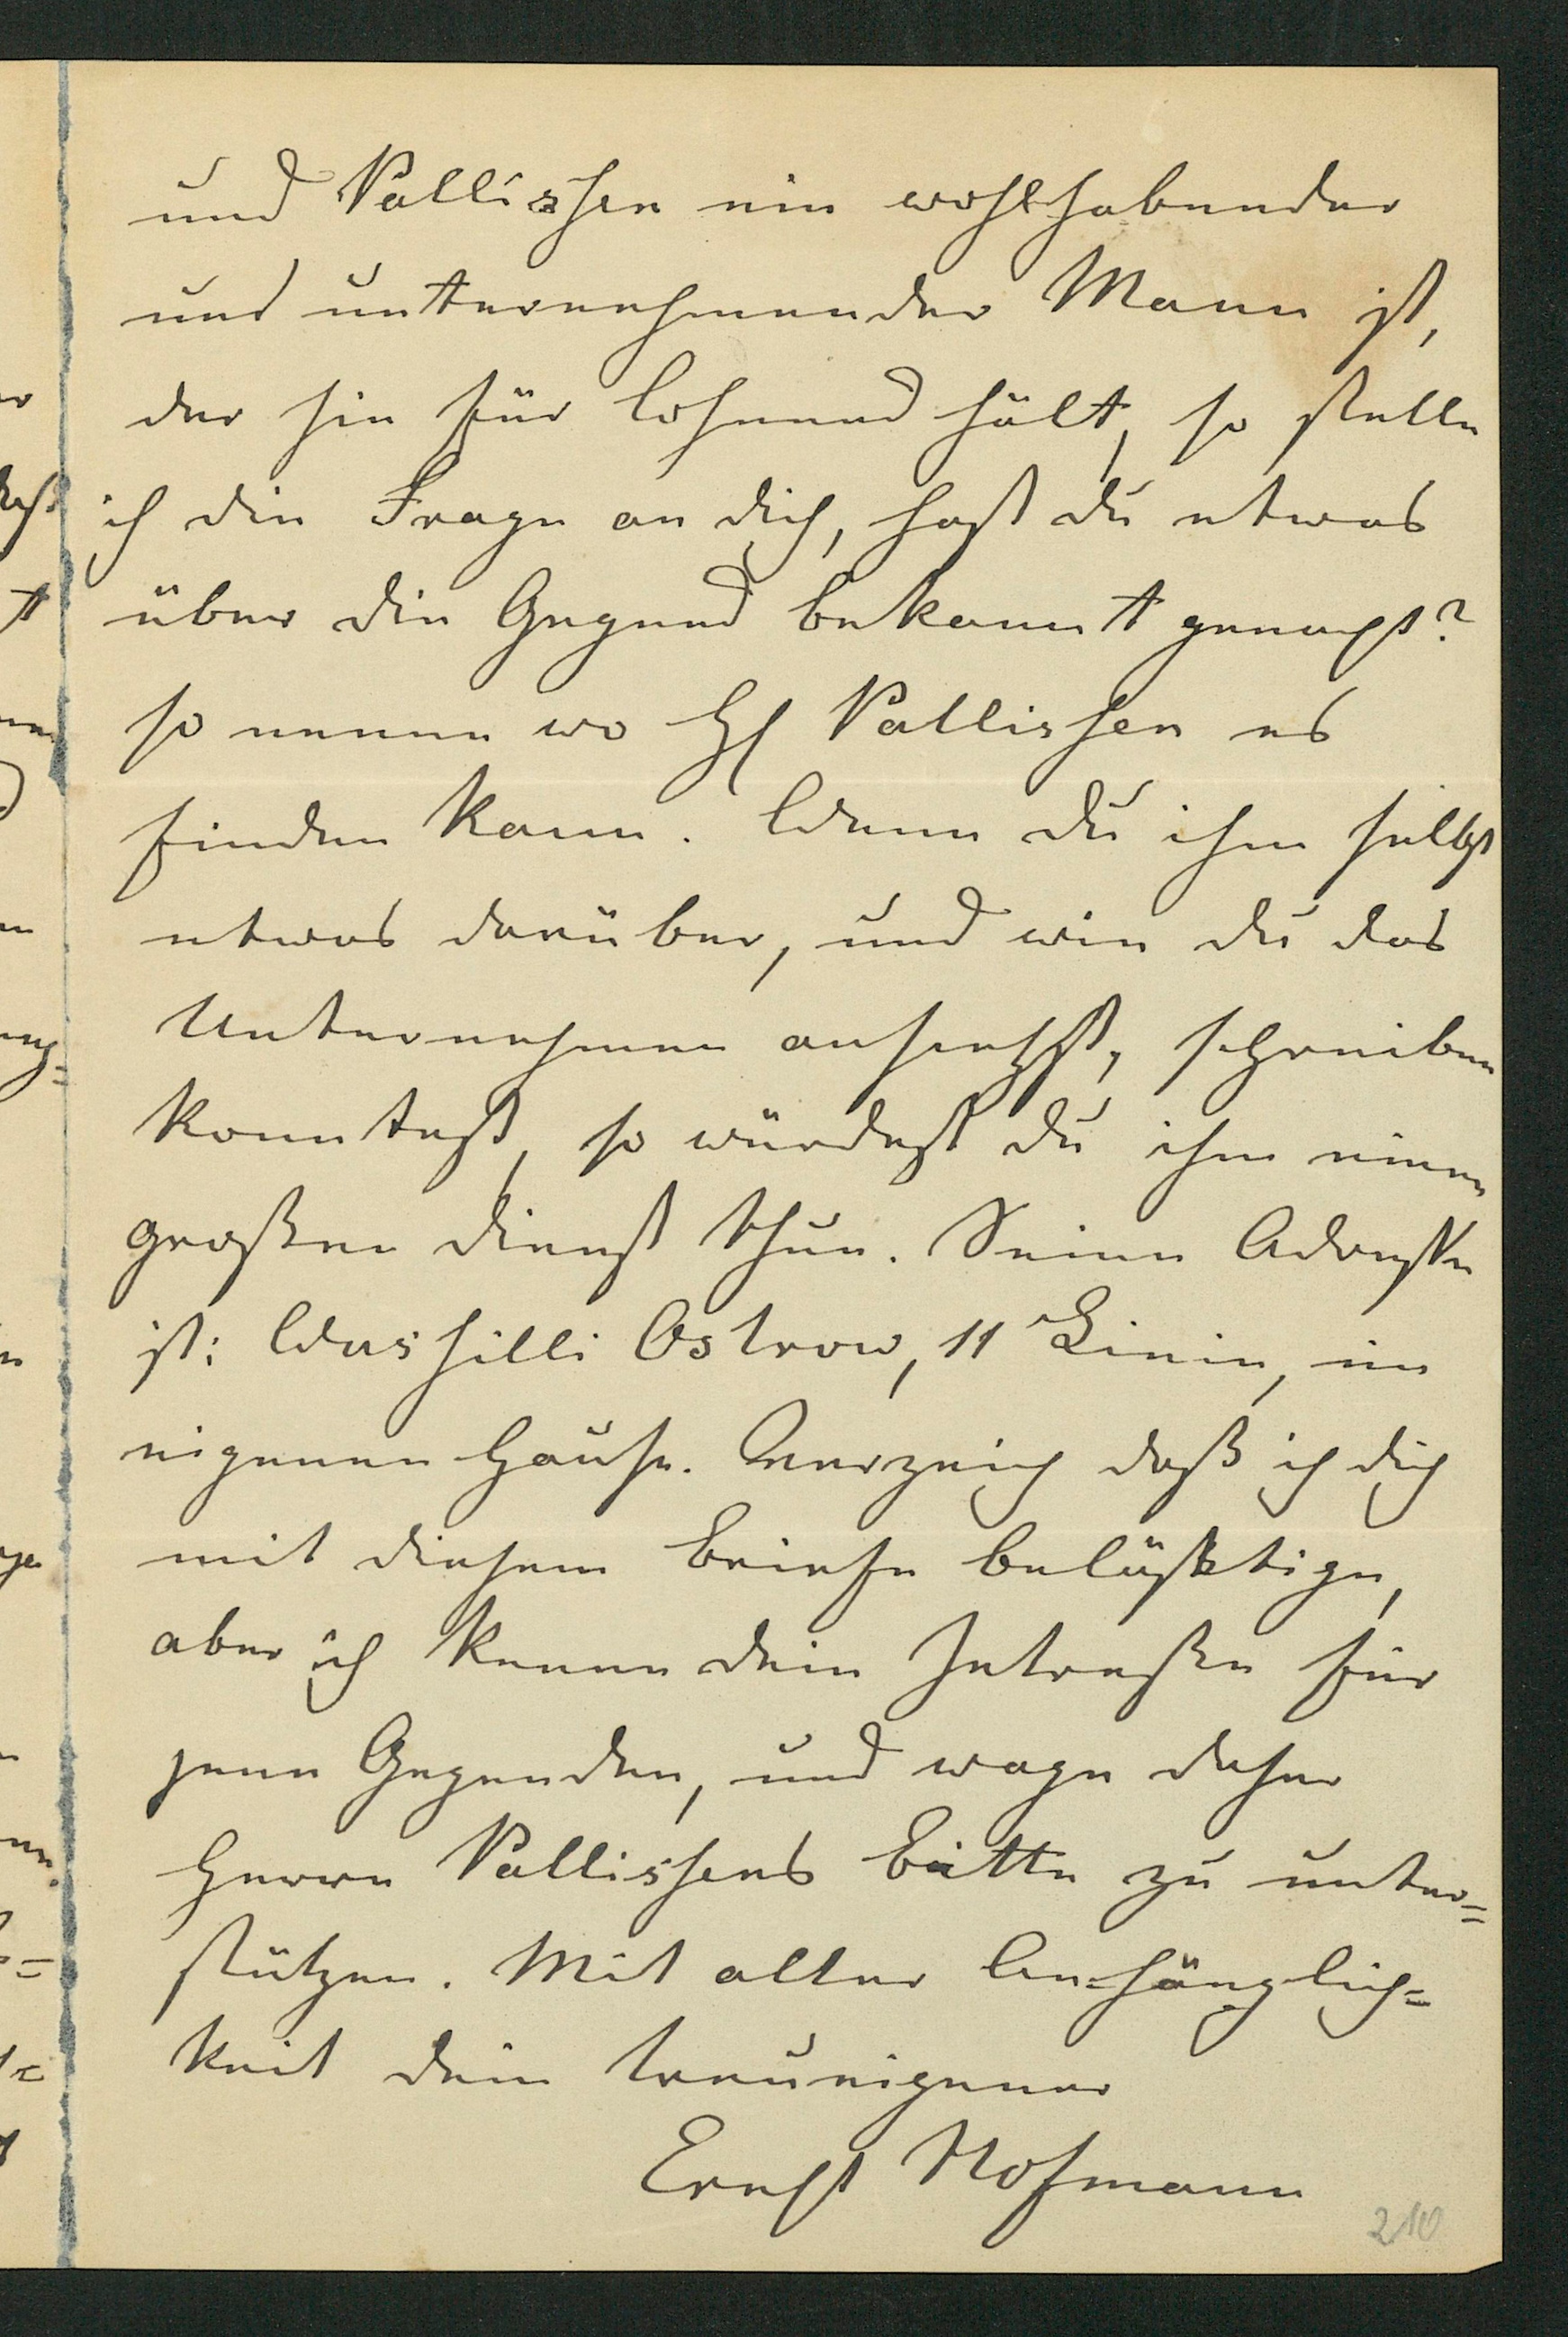 und Pallisen ein wohlhabender
und unternehmender Mann ist,
der sie für lohnend hält, so stelle
ich die Frage an dich, hast du etwas
über die Gegend bekannt gemacht?
so nenne wo H Pallisen es
finden kann. Wenn du ihm selbst
etwas darüber, und wie du das
Unternehmen ansiehst, schreiben
konntest, so würdest du ihm einen
großen Dienst thun. Seine Adresse
ist: Wassilli Ostrow, 11 Linie, im
eigenen Hause. Verzeich daß ich dich
mit diesem Briefe belästige,
aber ich kenne dein Intreße für
jene Gegenden, und wage daher
Herrn Pallisens Bitte zu unter=
stützen. Mit alter Anhänglich=
keit dein treueigener
Ernst Hofmann
210